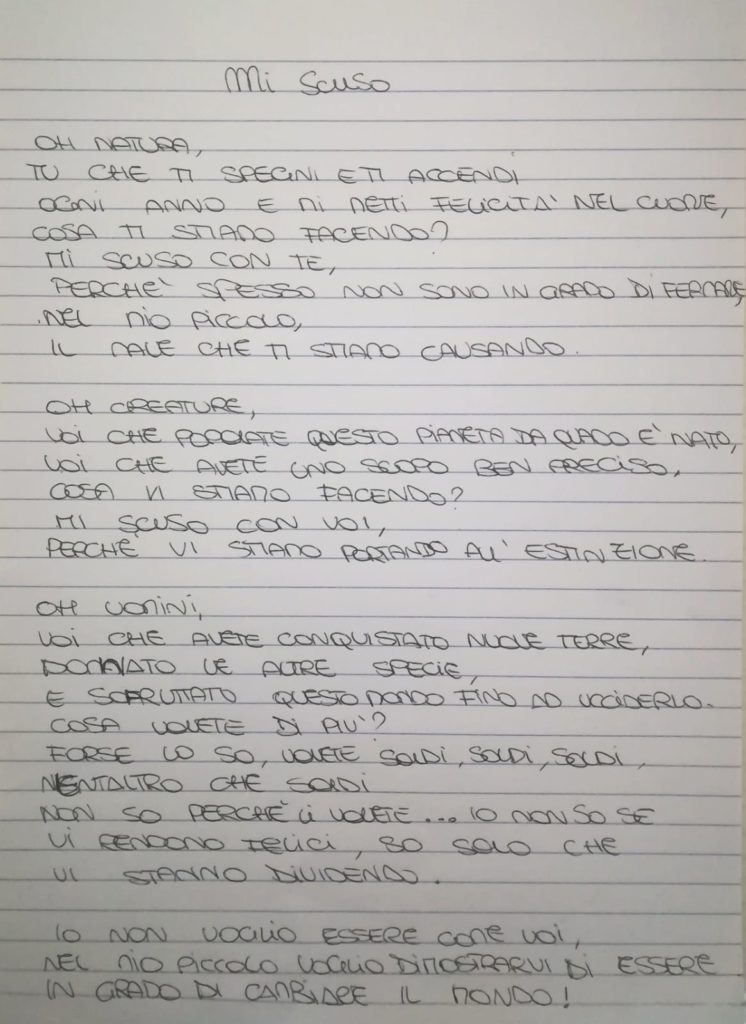 Mi scuso
OH NATURA,
TU CHE TI SPEGNI E TI ACCENDI
OGNI ANNO E MI METTI FELICITA' NEL CUORE,
COSA TI STIAMO FACENDO?
MI SCUSO CON TE,
PERCHE' SPESSO NON SONO IN GRADO DI FERMARE,
NEL MIO PICCOLO,
IL MALE CHE TI STIAMO CAUSANDO.
OH CREATURE,
VOI CHE POPOLATE QUESTO PIANETA DA QUADO E' NATO,
VOI CHE AVETE UNO SCOPO BEN PRECISO,
COSA VI STIAMO FACENDO?
MI SCUSO CON VOI,
PERCHÉ VI STIAMO PORTANDO ALL'ESTINZIONE.
OH UOMINI,
VOI CHE AVETE CONQUISTATO NUOVE TERRE,
DOMATO LE ALTRE SPECIE,
E SOFRUTTATO QUESTO MONDO FINO AD UCCIDERLO.
COSA VOLETE DI PIU'?
FORSE LO SO, VOLETE SOLDI, SOLDI, SOLDI,
NIENTALTRO CHE SOLDI
NON SO PERCHE' LI VOLETE... IO NON SO SE
VI RENDONO FELICI, SO SOLO CHE
VI STANNO DIVIDENDO.
IO NON VOGLIO ESSERE COME VOI,
NEL MIO PICCOLO VOGLIO DIMOSTRARVI DI ESSERE
IN GRADO DI CAMBIARE IL MONDO!